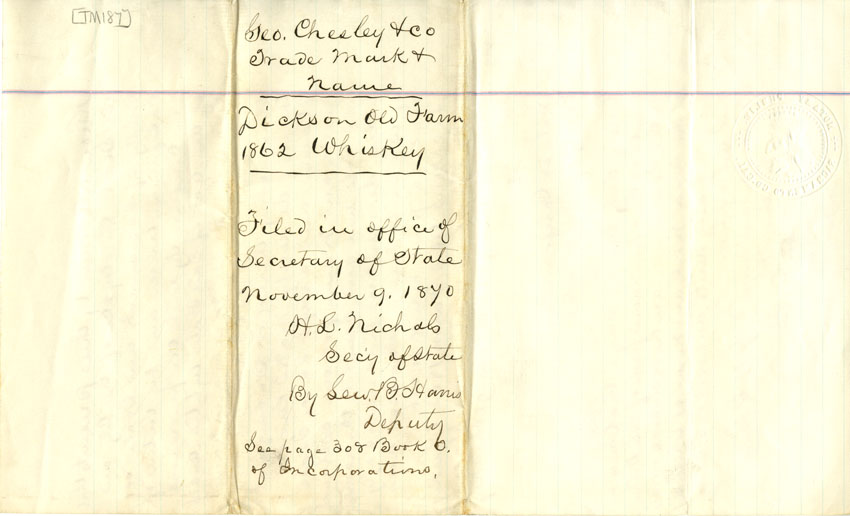 [TM187]
Geo. Chesley & Co
Trade Mark &
Name
Dickson Old Farm
1862 Whiskey
Filed in office of
Secretary of State
November 9. 1870
H.L. Nichols
Secy of State
By Lew. B. Harris
Deputy
See page 308 Book 6.
of Incorporations.